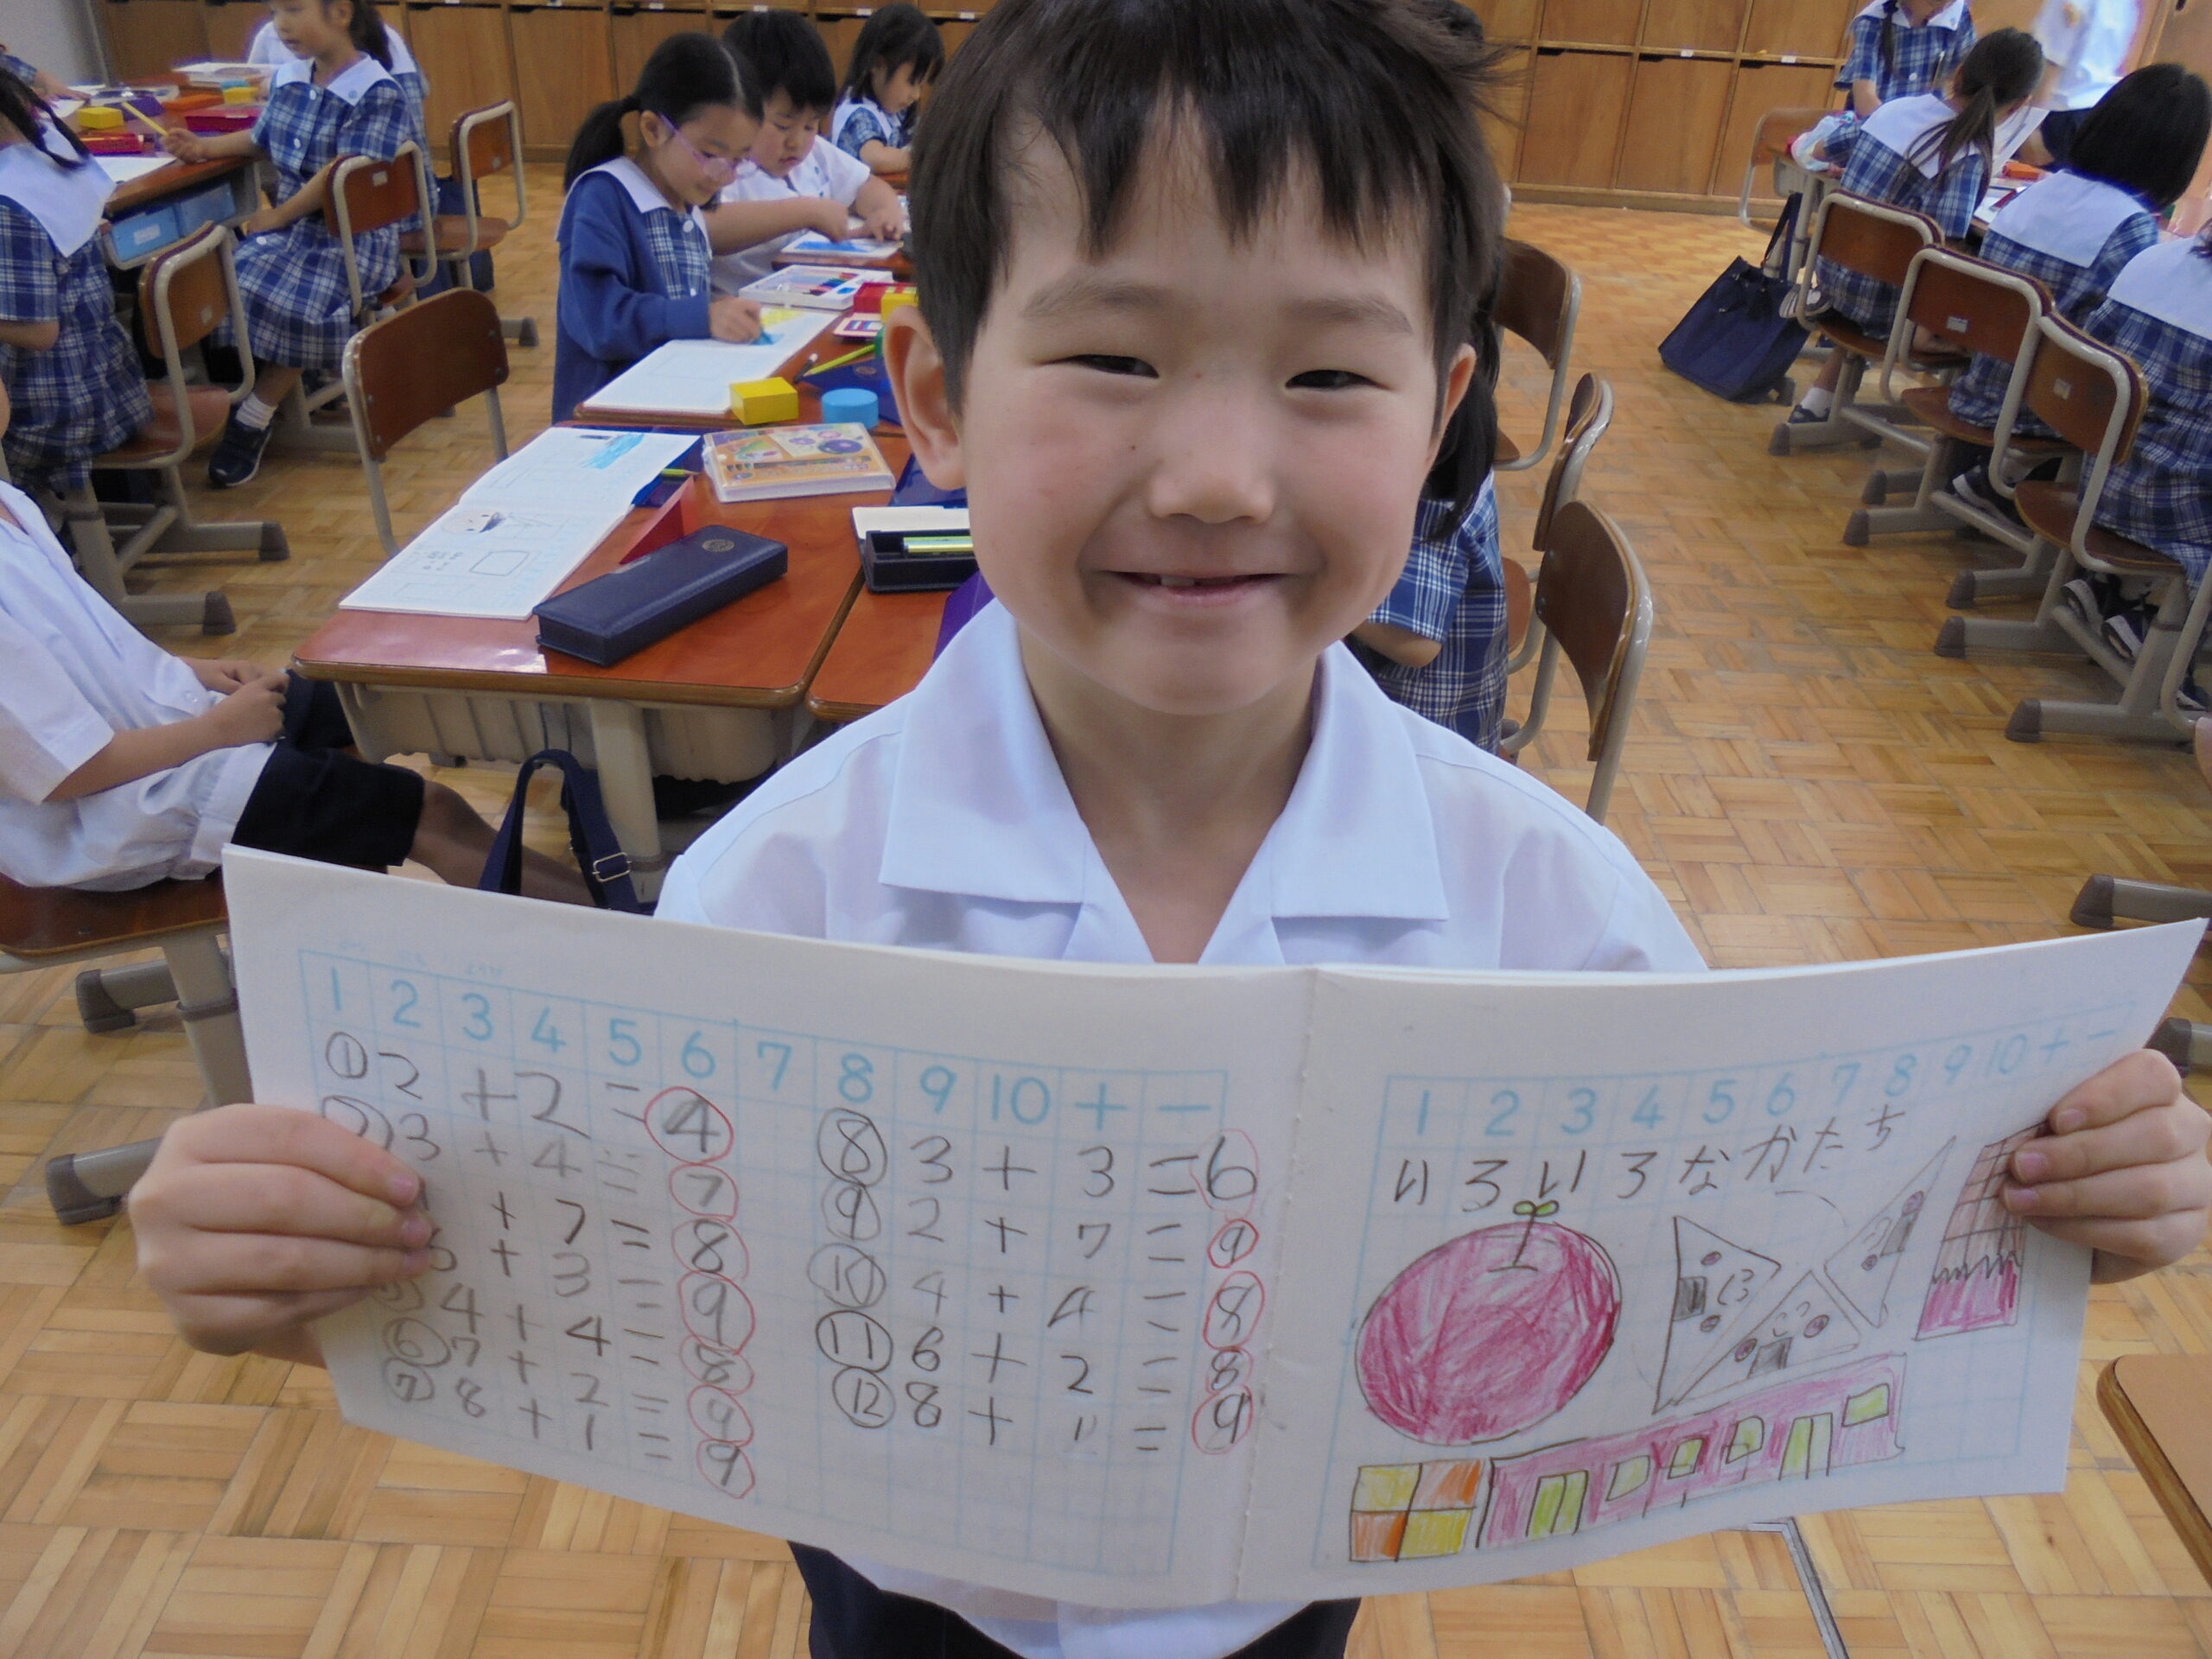 1 2 3 4 5 6 7 8 9 10 + −
① 2 + 2 = 4
② 3 + 4 = 7
+ 7 = 8
6 + 3 = 9
4 + 4 = 8
⑥ 7 + 2 = 9
⑦ 8 + 1 = 9
⑧ 3 + 3 = 6
⑨ 2 + 7 = 9
⑩ 4 + 4 = 8
⑪ 6 + 2 = 8
⑫ 8 + 1 = 9
1 2 3 4 5 6 7 8 9 10 + −
いろいろなかたち